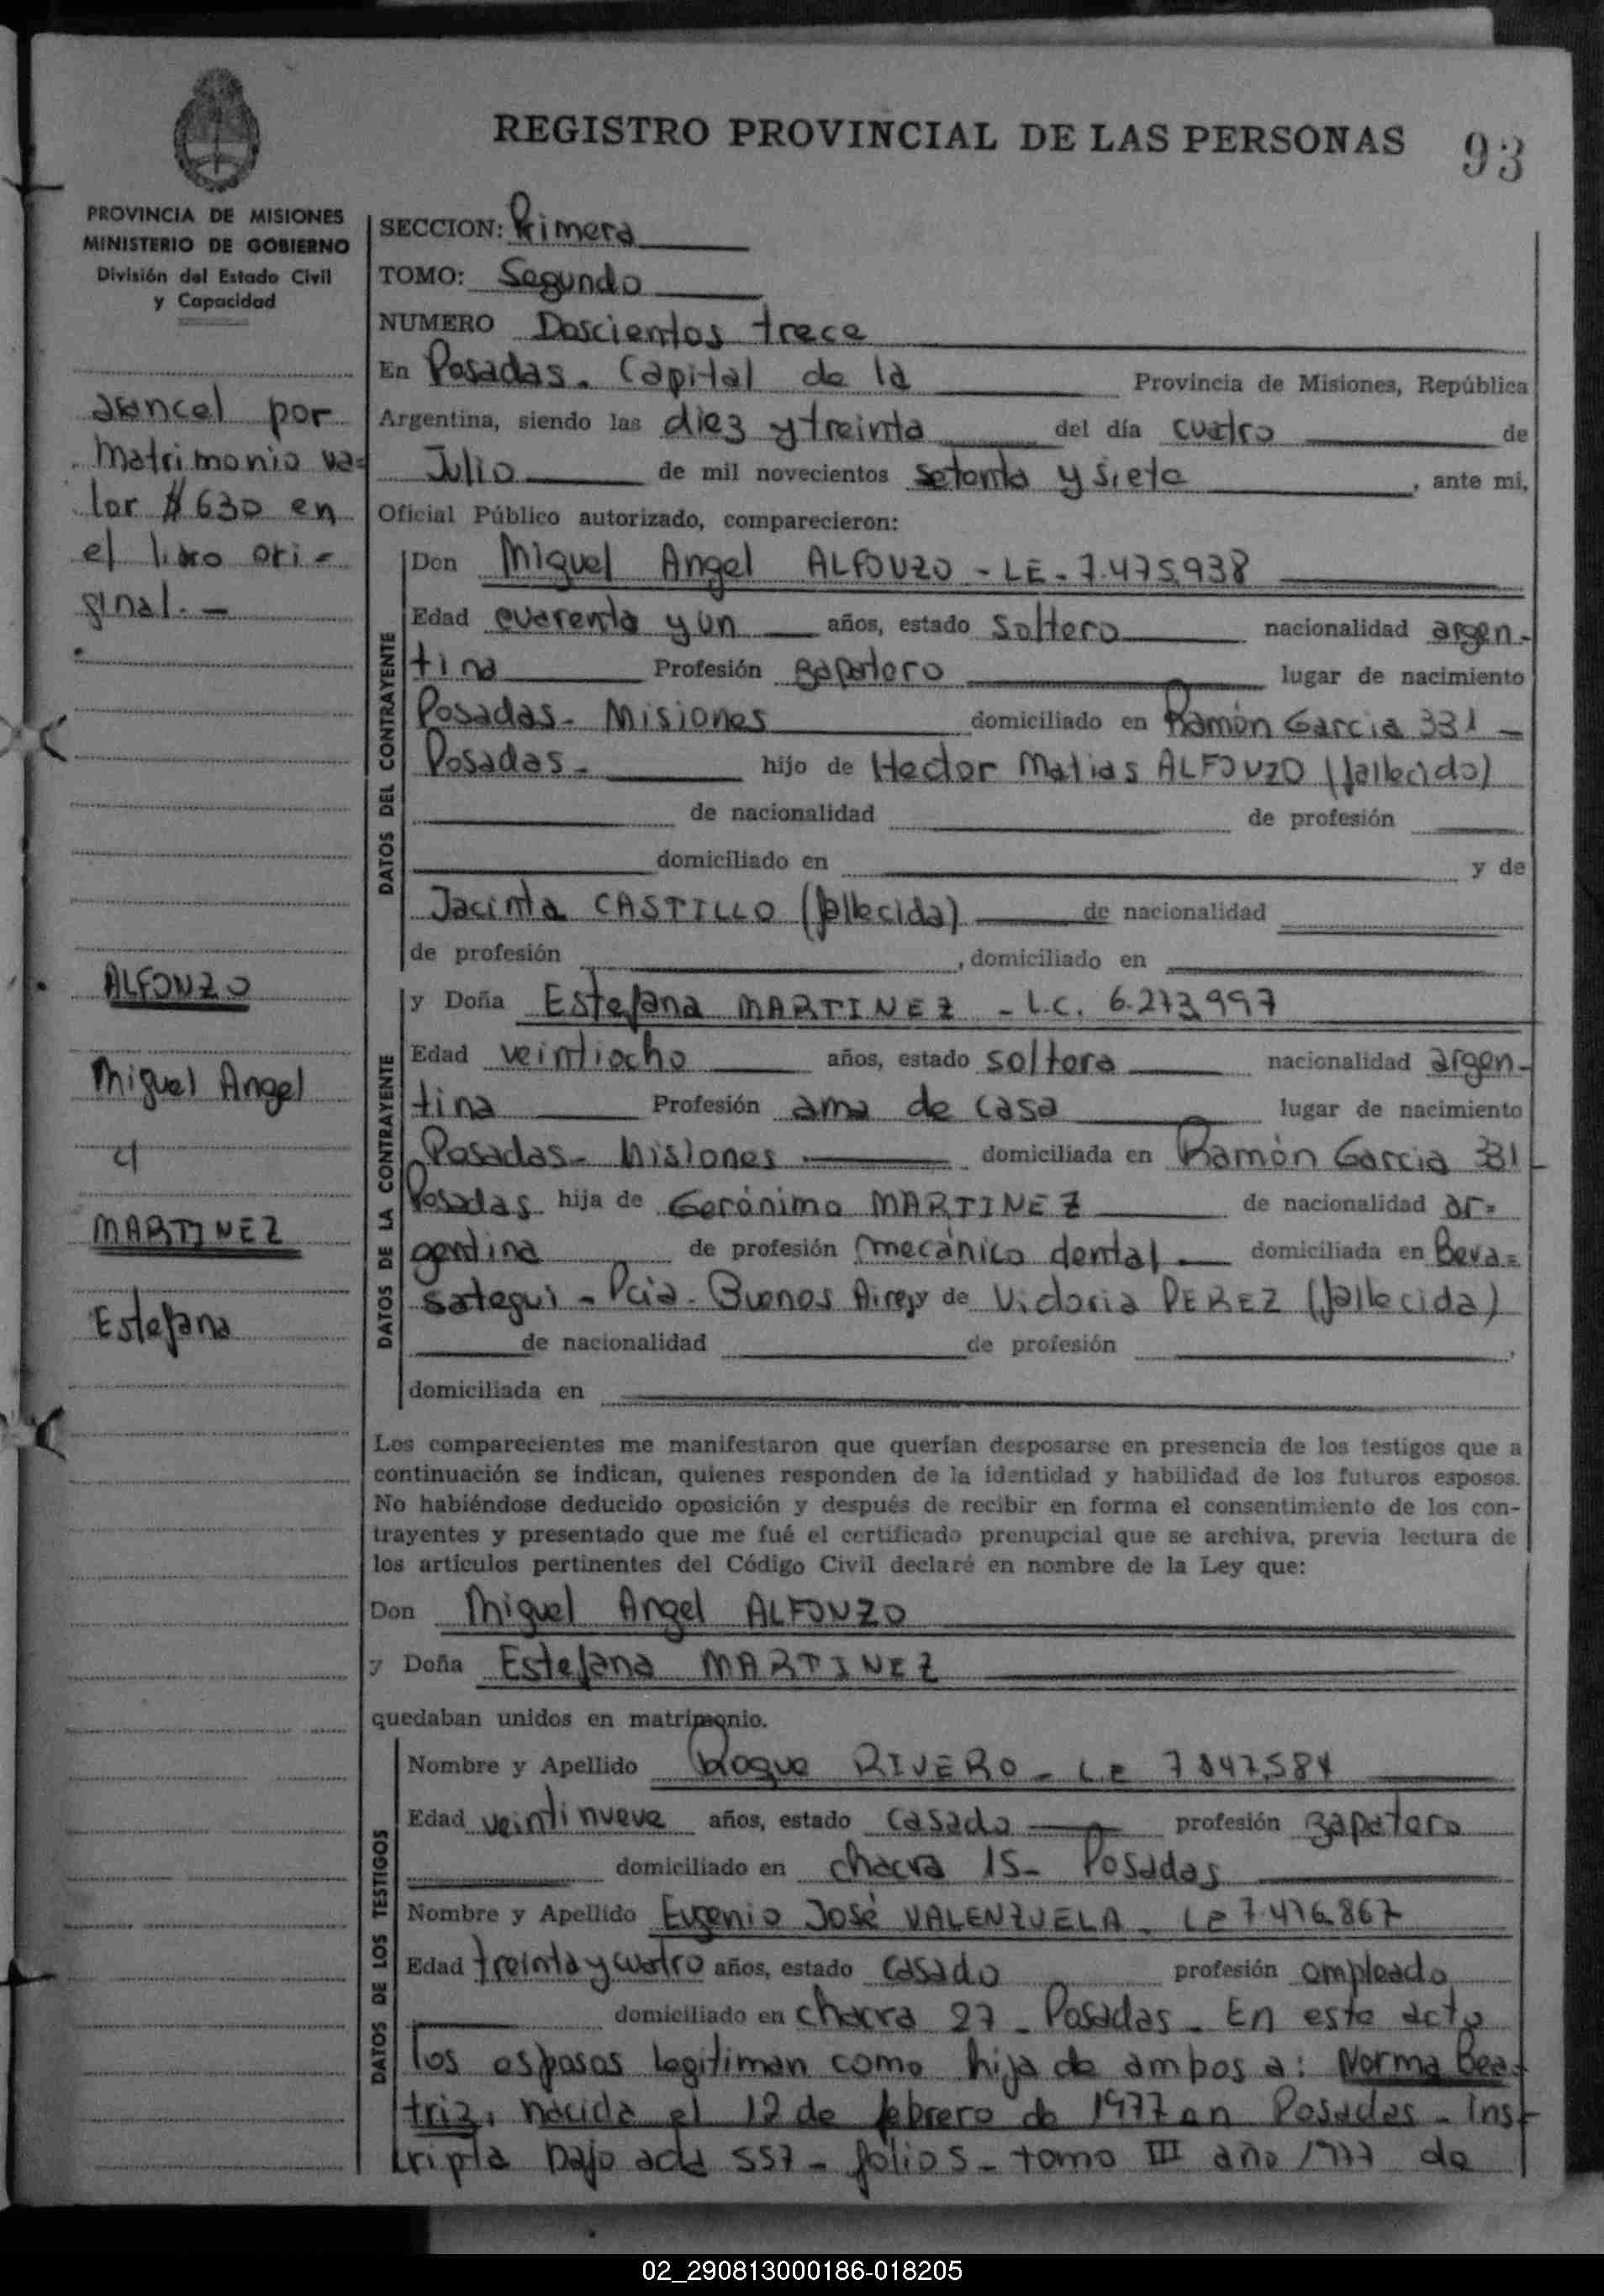 REGISTRO PROVINCIAL DE LAS PERSONAS 93
PROVINCIA DE MISIONES
MINISTERIO DE GOBIERNO
División del Estado Civil
y Capacidad
arancel por
Matrimonio va=
lor $ 630 en
el libro ori-
ginal.-
ALFONZO
Miguel Angel
c/
MARTINEZ
Estefana
SECCION: Primera
TOMO: Segundo
NUMERO Doscientos trece
En Posadas. Capital de la Provincia de Misiones, República
Argentina, siendo las diez y treinta del día cuatro de
Julio de mil novecientos setenta y siete, ante mi,
Oficial Público autorizado, comparecieron:
DATOS DEL CONTRAYENTE
Don Miguel Angel ALFONZO - LE - 7.475.938
Edad cuarenta y un años, estado soltero nacionalidad argen-
tina Profesión zapatero lugar de nacimiento
Posadas - Misiones domiciliado en Ramón Garcia 331 -
Posadas - hijo de Hector Matias ALFONZO (fallecido)
de nacionalidad de profesión
domiciliado en y de
Jacinta CASTILLO (fallecida) de nacionalidad
de profesión , domiciliado en
DATOS DE LA CONTRAYENTE
y Doña Estefana MARTINEZ - L.C. 6.273.997
Edad veintiocho años, estado soltera nacionalidad argen-
tina Profesión ama de casa lugar de nacimiento
Posadas - Misiones domiciliada en Ramón Garcia 331
Posadas hija de Gerónimo MARTINEZ de nacionalidad ar=
gentina de profesión mecánico dental domiciliada en Bera=
sategui - Pcia. Buenos Aires y de Victoria PEREZ (fallecida)
de nacionalidad de profesión ,
domiciliada en
Los comparecientes me manifestaron que querían desposarse en presencia de los testigos que a
continuación se indican, quienes responden de la identidad y habilidad de los futuros esposos.
No habiéndose deducido oposición y después de recibir en forma el consentimiento de los con-
trayentes y presentado que me fué el certificado prenupcial que se archiva, previa lectura de
los artículos pertinentes del Código Civil declaré en nombre de la Ley que:
Don Miguel Angel ALFONZO
y Doña Estefana MARTINEZ
quedaban unidos en matrimonio.
DATOS DE LOS TESTIGOS
Nombre y Apellido Roque RIVERO - L.E 7847.584
Edad veintinueve años, estado casado profesión zapatero
domiciliado en chacra 15 - Posadas
Nombre y Apellido Eugenio José VALENZUELA - LE 7.476.867
Edad treinta y cuatro años, estado casado profesión empleado
domiciliado en chacra 27 - Posadas - En este acto
los esposos legitiman como hija de ambos a: Norma Bea-
triz, nacida el 12 de febrero de 1977 en Posadas - Ins-
cripta bajo acta 557 - folio 5 - tomo III año 1977 de
02_290813000186-018205